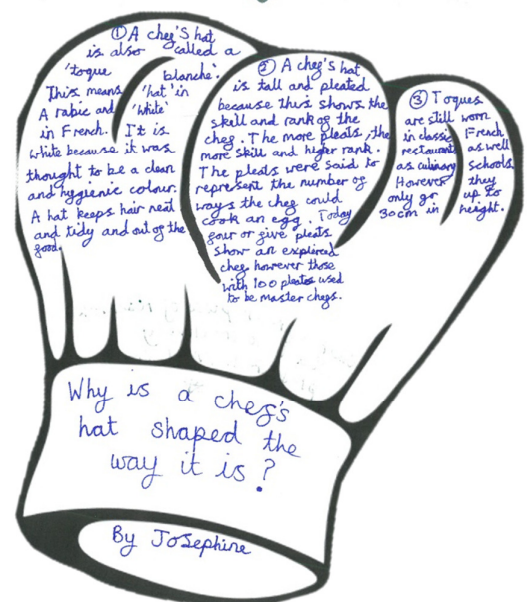 ① A chef's hat
is also called a
'toque blanche'.
This means 'hat' in
Arabic and 'white'
in French. It is
white because it was
thought to be a clean
and hygienic colour.
A hat keeps hair neat
and tidy and out of the
food.
② A chef's hat
is tall and pleated
because this shows the
skill and rank of the
chef. The more pleats, the
more skill and higher rank.
The pleats were said to
represent the number of
ways the chef could
cook an egg. Today
four or five pleats
show an expliced
chef however those
with 100 pleats used
to be master chefs.
③ Toques
are still worn
in classic French
restaurants as well
as culinary schools.
However they
only go up to
30cm in height.
Why is a chef's
hat shaped the
way it is?
By Josephine